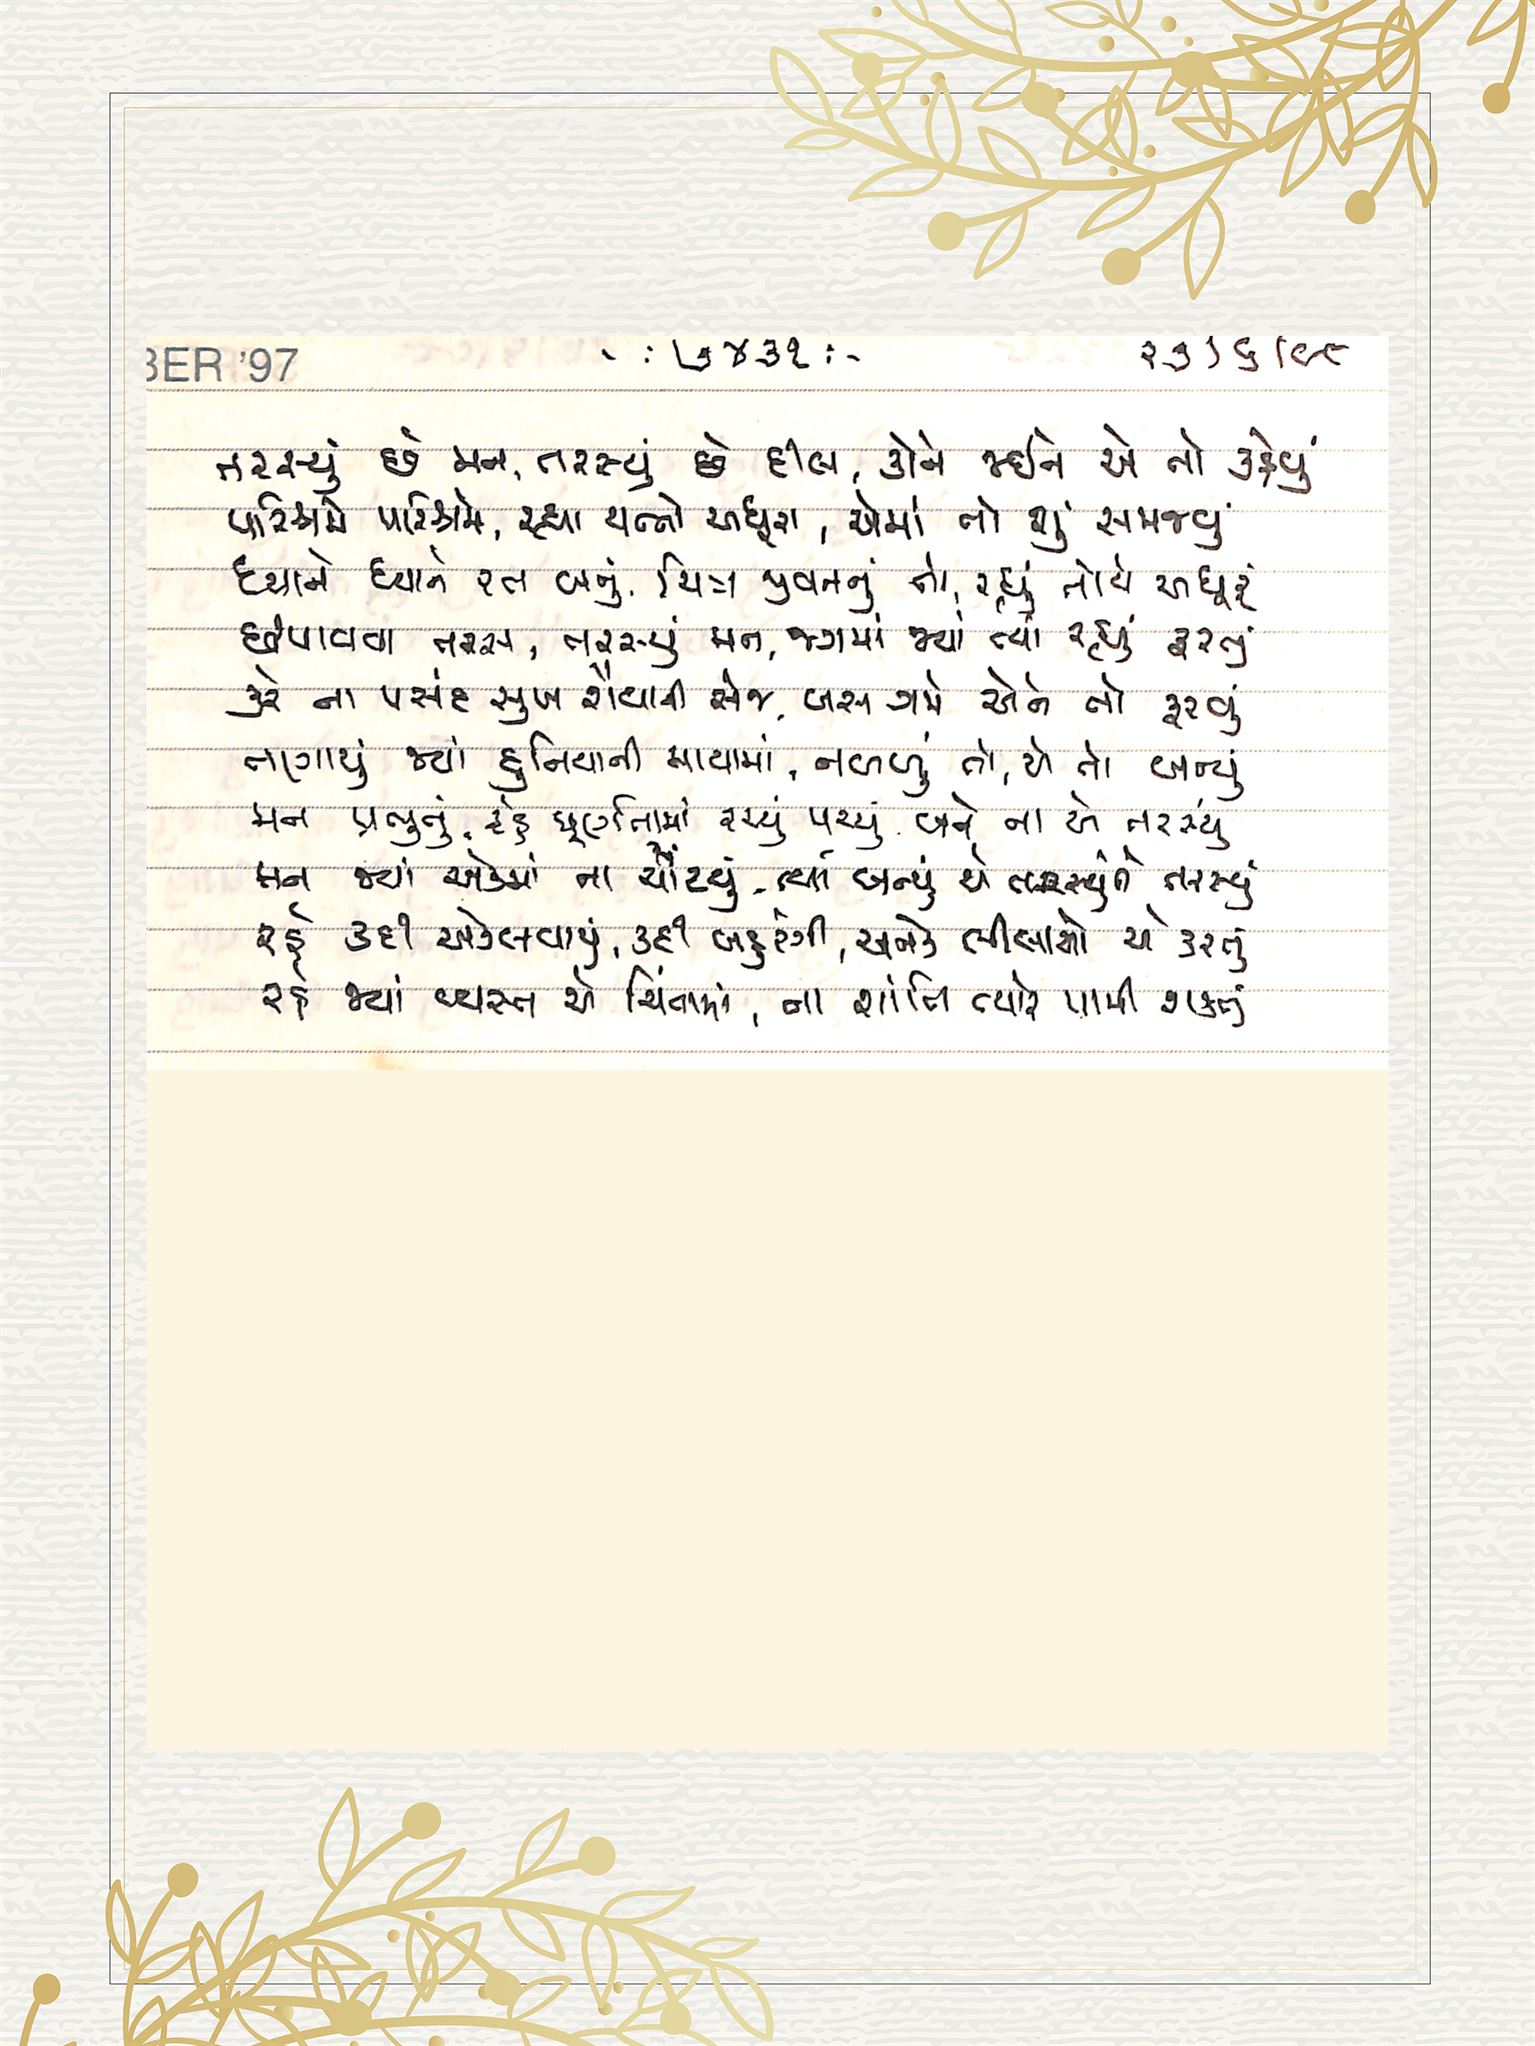 BER '97
- : ૭૪૩૧ : -
૨૭/૬/૯૮
તરસ્યું છે મન, તરસ્યું છે દીલ, કોને જઈને એ તો કહેવું
પરિશ્રમે પરિશ્રમે, રહ્યા યત્નો અધૂરા, એમાં તો શું સમજવું
ધ્યાને ધ્યાને રત બનું, ચિત્ર પ્રવતનું તો, રહ્યું તોયે અધૂરૂં
છીપાવવા તરસ, તરસ્યું મન, જગમાં જ્યાં ત્યાં રહ્યું ફરતું
કરે ના પસંદ સુખ શૈયાની સેજ, બસ ગમે એને તો ફરવું
તણાયું જ્યાં દુનિયાની માયામાં, નબળું તો, એ તો બન્યું
મન પ્રભુનું, રહે પૂર્ણતામાં રચ્યું પચ્યું બને ના એ તરસ્યું
મન જ્યાં એકમાં ના ચોંટ્યું, ત્યાં બન્યું એ તરસ્યું ને તરસ્યું
રહે કદી એકલવાયું, કદી બહુરંગી, અનેક લીલાઓ એ કરતું
રહે જ્યાં વ્યસ્ત એ ચિંતામાં, ના શાંતિ ત્યારે પામી શકતું